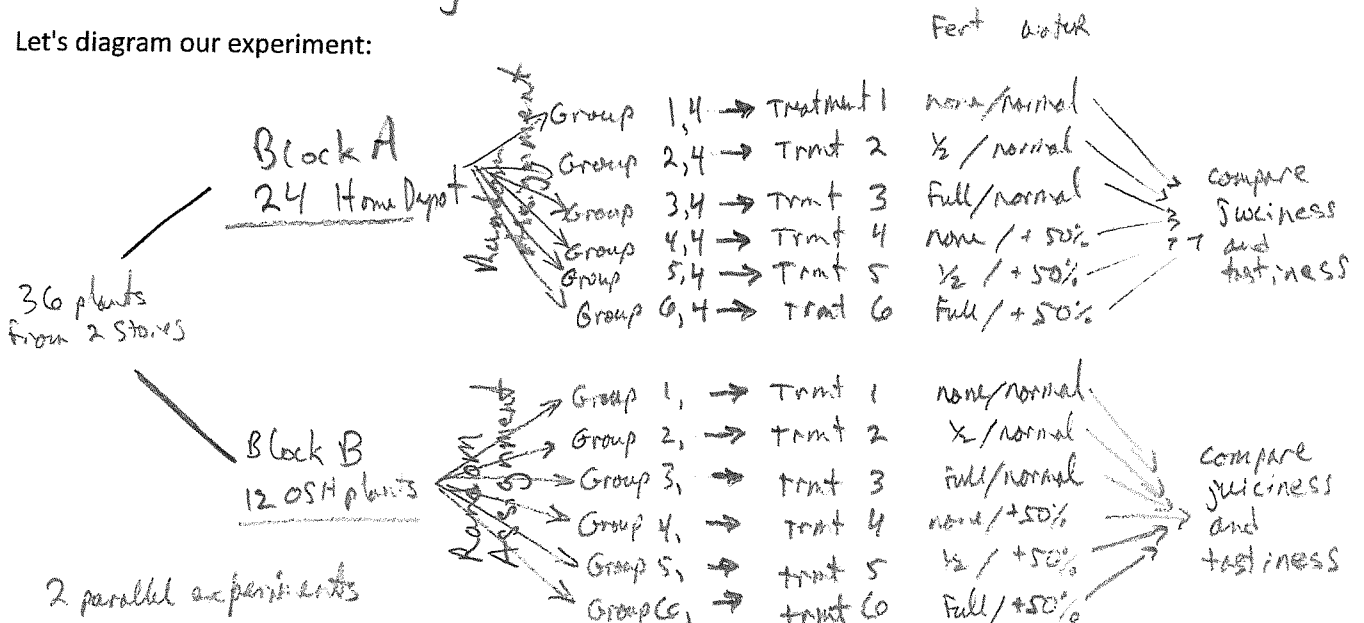 Fert water
Let's diagram our experiment:
Block A
24 Home Depot
Random Assignment
Group 1,4 → Treatment 1 none/normal
Group 2,4 → Trmt 2 ½ / normal
Group 3,4 → Trmt 3 Full/normal
Group 4,4 → Trmt 4 none / + 50%
Group 5,4 → Trmt 5 ½ / + 50%
Group 6,4 → Trmt 6 Full / + 50%
compare
juiciness
and
tastiness
36 plants
from 2 stores
Block B
12 OSH plants
Random
Assignment
Group 1, → Trmt 1 none/normal
Group 2, → trmt 2 ½/normal
Group 3, → trmt 3 Full/normal
Group 4, → trmt 4 none/+50%
Group 5, trmt 5 ½ / +50%
Group 6, → trmt 6 Full/+50%
compare
juiciness
and
tastiness
2 parallel experiments